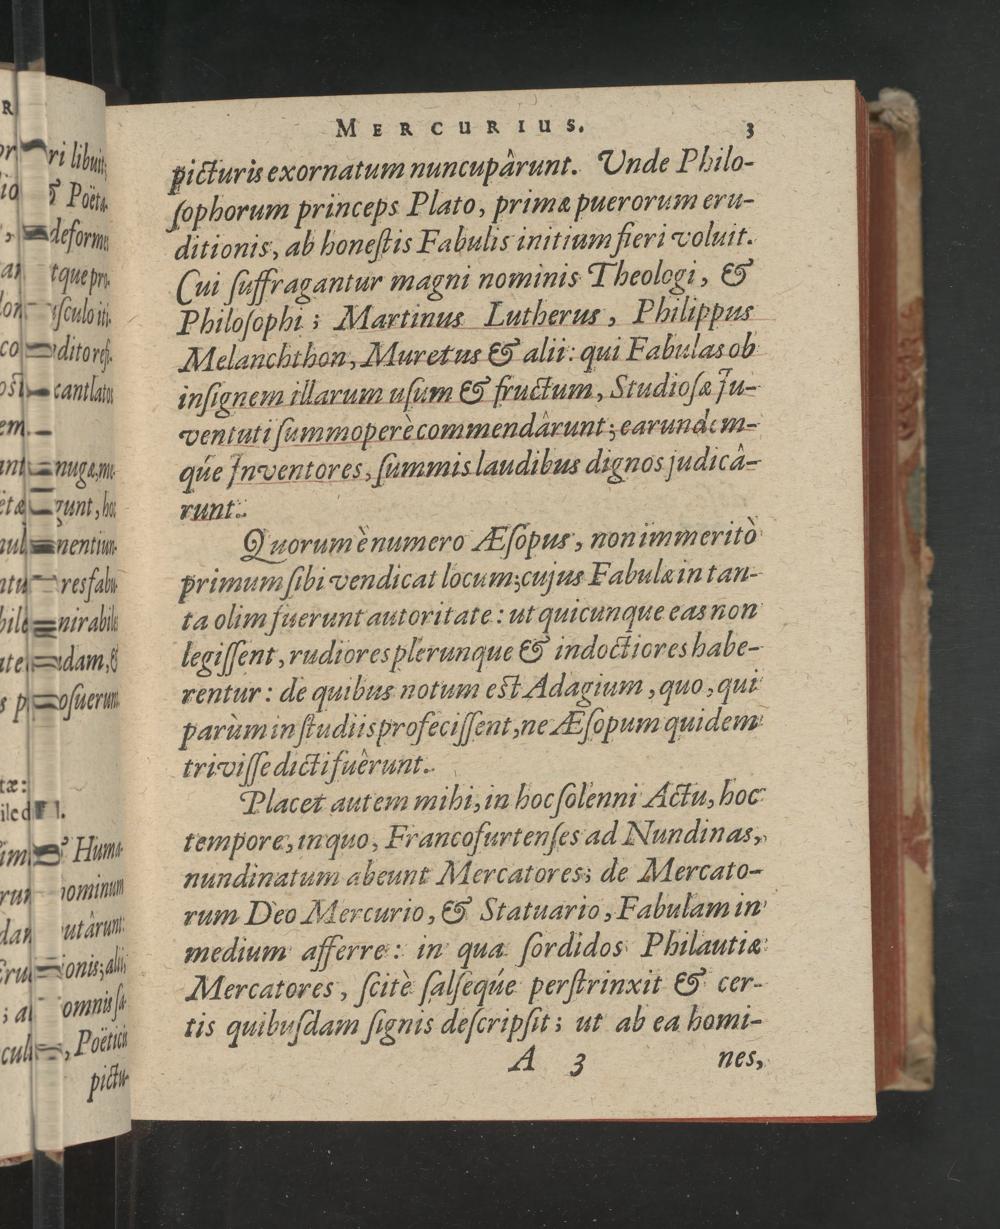 MERCURIUS. 3
picturis exornatum nuncupârunt. Unde Philo-
ſophorum princeps Plato, primæ puerorum eru-
ditionis, ab honeſtis Fabulis initium fieri voluit.
Cui ſuffragantur magni nominis Theologi, &
Philoſophi; Martinus Lutherus, Philippus
Melanchthon, Muretus & alii: qui Fabulas ob
inſignem illarum uſum & fructum, Studioſæ Ju-
ventuti ſummoperè commendârunt; earundem-
qúe Inventores, ſummis laudibus dignos judicâ-
runt.
Quorum è numero Æſopus, non immeritò
primum ſibi vendicat locum; cujus Fabulæ in tan-
ta olim fuerunt autoritate: ut quicunque eas non
legiſſent, rudiores plerunque & indoctiores habe-
rentur: de quibus notum eſt Adagium, quo, qui
parùm in ſtudiis profeciſſent, ne Æſopum quidem
triviſſe dicti fuêrunt.
Placet autem mihi, in hoc ſolenni Actu, hoc
tempore, in quo, Francofurtenſes ad Nundinas,
nundinatum abeunt Mercatores; de Mercato-
rum Deo Mercurio, & Statuario, Fabulam in
medium afferre: in qua ſordidos Philautiæ
Mercatores, ſcitè ſalſeqúe perſtrinxit & cer-
tis quibuſdam ſignis deſcripſit; ut ab ea homi-
A 3 nes,
ri libuit,
& Poëta-
deforme
tque pro-
uſculo iii.
cant latos
nugæ, me-
gunt, hoc
res fabu-
mirabiles
oſuerunt
& Huma-
hominum
utârunt:
ionis; alii,
omnis ſa-
, Poëticis
pictu-